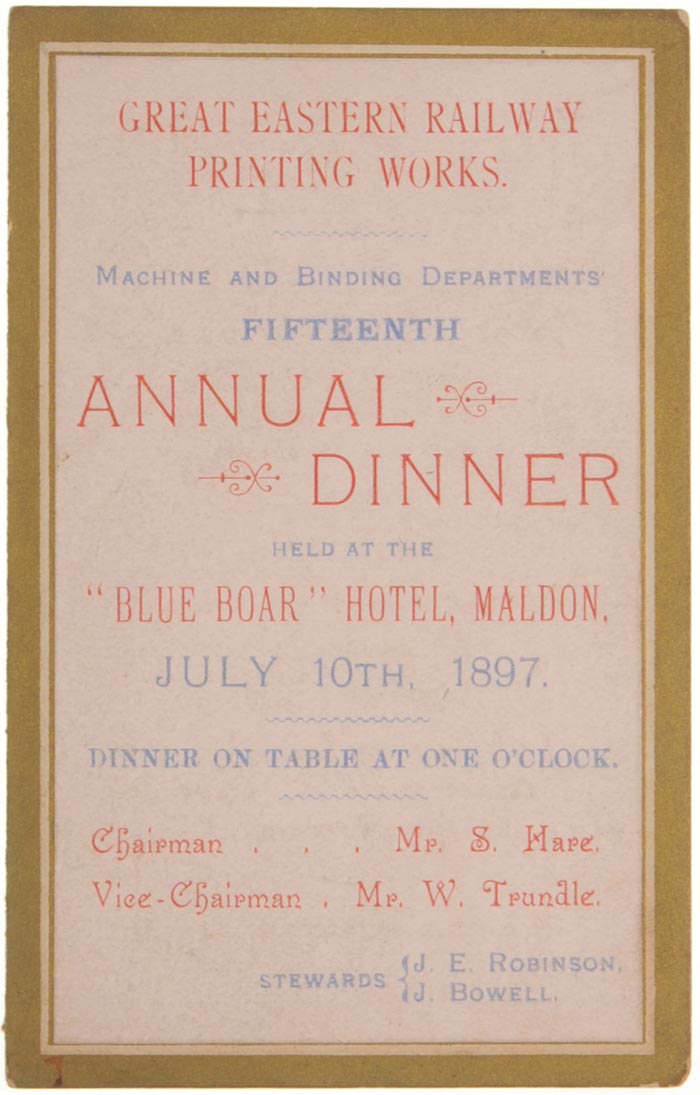 GREAT EASTERN RAILWAY
PRINTING WORKS.
MACHINE AND BINDING DEPARTMENTS'
FIFTEENTH
ANNUAL
DINNER
HELD AT THE
"BLUE BOAR" HOTEL, MALDON,
JULY 10TH, 1897.
DINNER ON TABLE AT ONE O'CLOCK.
Chairman . . . Mr. S. Hare.
Vice-Chairman . Mr. W. Trundle.
STEWARDS { J. E. ROBINSON,
J. BOWELL.